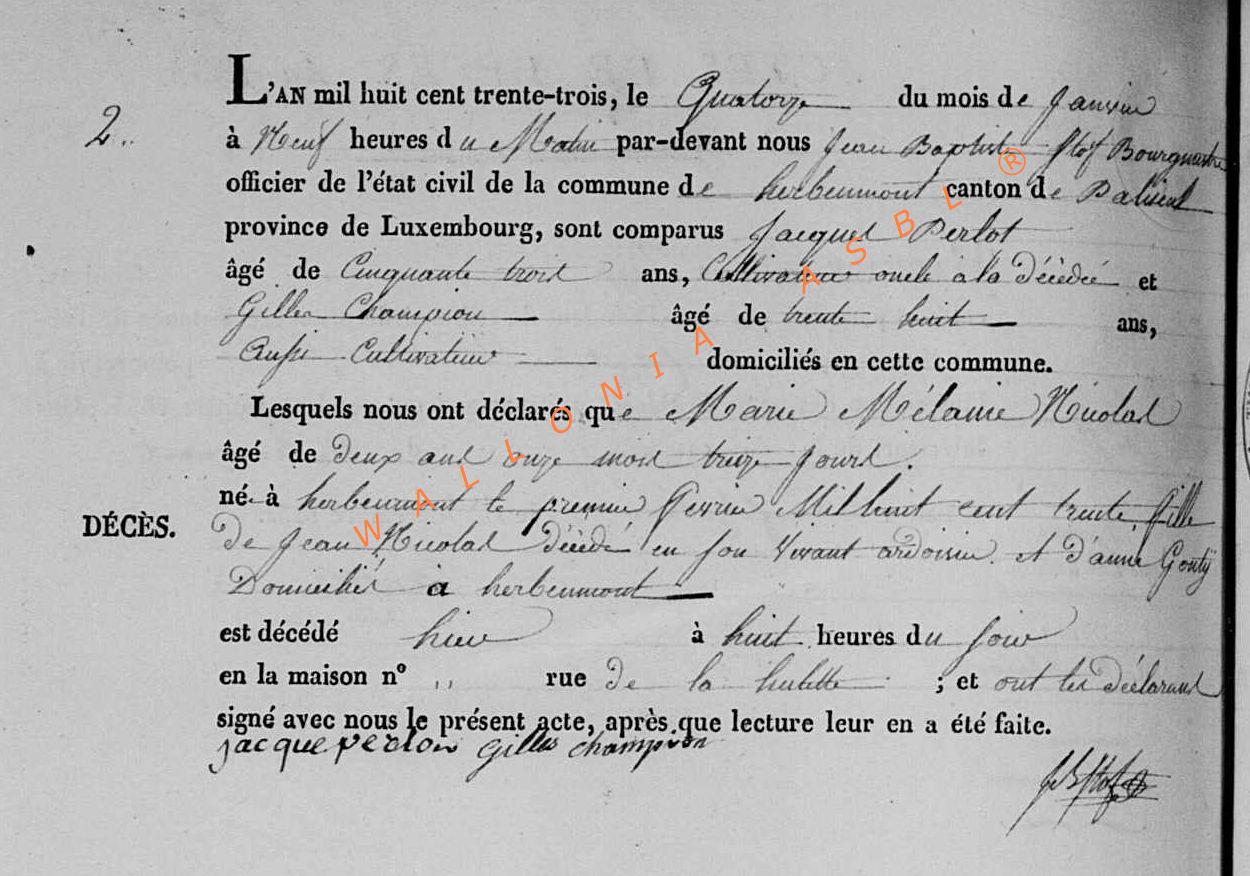 L'AN mil huit cent trente-trois, le Quatorze du mois de Janvier
2..
à Neuf heures du Matin par-devant nous Jean Baptiste Stof Bourgmestre
officier de l'état civil de la commune de herbeumont canton de Paliseul
province de Luxembourg, sont comparus Jacques Perlot
âgé de Cinquante trois ans, Cultivateur oncle à la Décédée et
Gilles Champion âgé de trente huit ans,
Aussi Cultivateur domiciliés en cette commune.
Lesquels nous ont déclarés que Marie Mélanie Nicolas
âgé de Deux ans onze mois treize Jours.
né à herbeumont le premier Fevrier Mil huit cent trente, fille
DÉCÈS.
De Jean Nicolas Décédé en son vivant ardoisier et D'anne Gouty
Domiciliés à herbeumont
est décédé hier à huit heures du soir
en la maison nº ,, rue De la hulette ; et ont les Déclarans
signé avec nous le présent acte, après que lecture leur en a été faite.
jacque perlot Gilles champion
JB Stof
WALLONIA ASBL ®